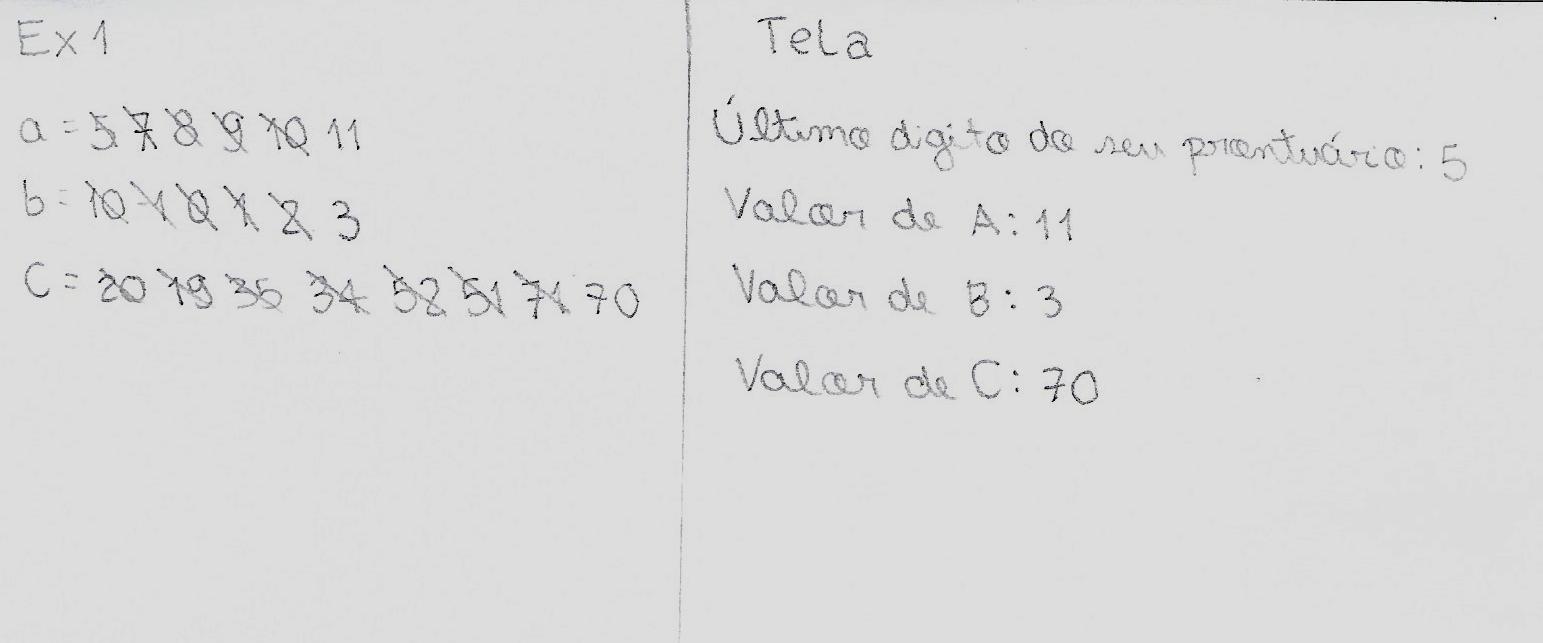 Ex 1
a = 5 7 8 9 10 11
b = 10 -1 0 1 2 3
C = 20 19 35 34 52 51 71 70
Tela
Último digito do seu prontuário: 5
Valor de A: 11
Valor de B: 3
Valor de C: 70